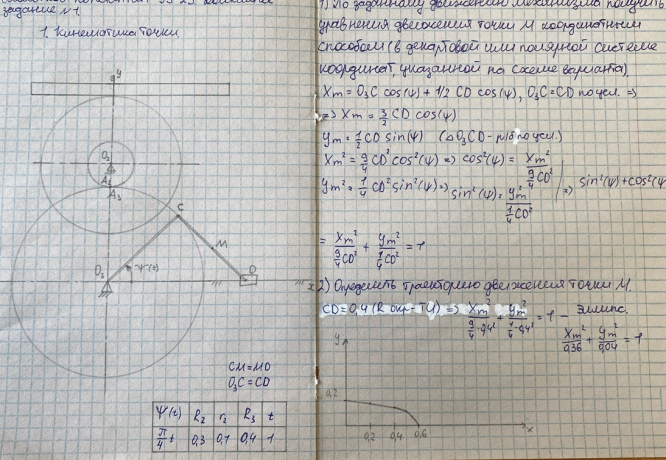 задание №1.
1. Кинематика точки
y
O₂
A₂
A₃
C
M
Ψ(t)
O₃
D
x
CM=MD
O₃C=CD
Ψ(t) R₂ r₂ R₃ t
π/4 t 0,3 0,1 0,4 1
1) По заданному движению механизма получить
уравнения движения точки М координатным
способом (в декартовой или полярной системе
координат, указанной на схеме варианта)
Xm = O₃C cos(ψ) + 1/2 CD cos(ψ), O₃C=CD по усл. ⇒
⇒ Xm = 3/2 CD cos(ψ)
Ym = 1/2 CD sin(ψ) (△O₃CD – р/б по усл.)
Xm² = 9/4 CD² cos²(ψ) ⇒ cos²(ψ) = Xm² / 9/4 CD²
Ym² = 1/4 CD² sin²(ψ) ⇒ sin²(ψ) = Ym² / 1/4 CD² ⇒ sin²(ψ)+cos²(ψ
= Xm² / 9/4 CD² + Ym² / 1/4 CD² = 1
2) Определить траекторию движения точки М.
CD = 0,4 (R окр-ти) ⇒ Xm² / 9/4 · 0,4² + Ym² / 1/4 · 0,4² = 1 – эллипс.
Xm² / 0,36 + Ym² / 0,04 = 1
y
0,2
0,2 0,4 0,6 x